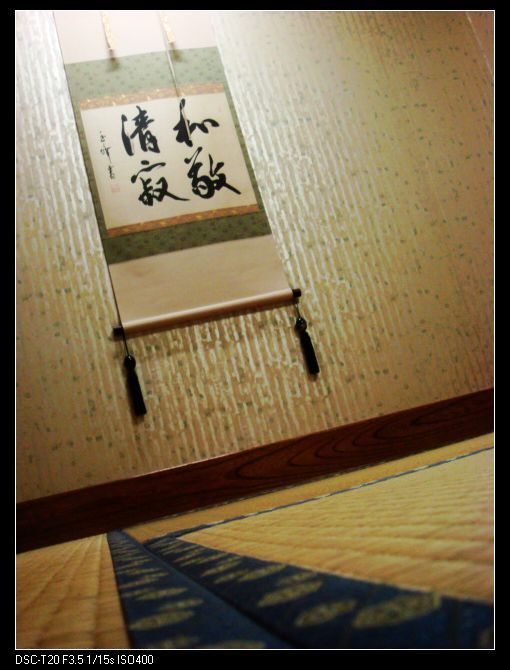 和敬
清寂
DSC-T20 F3.5 1/15s ISO400